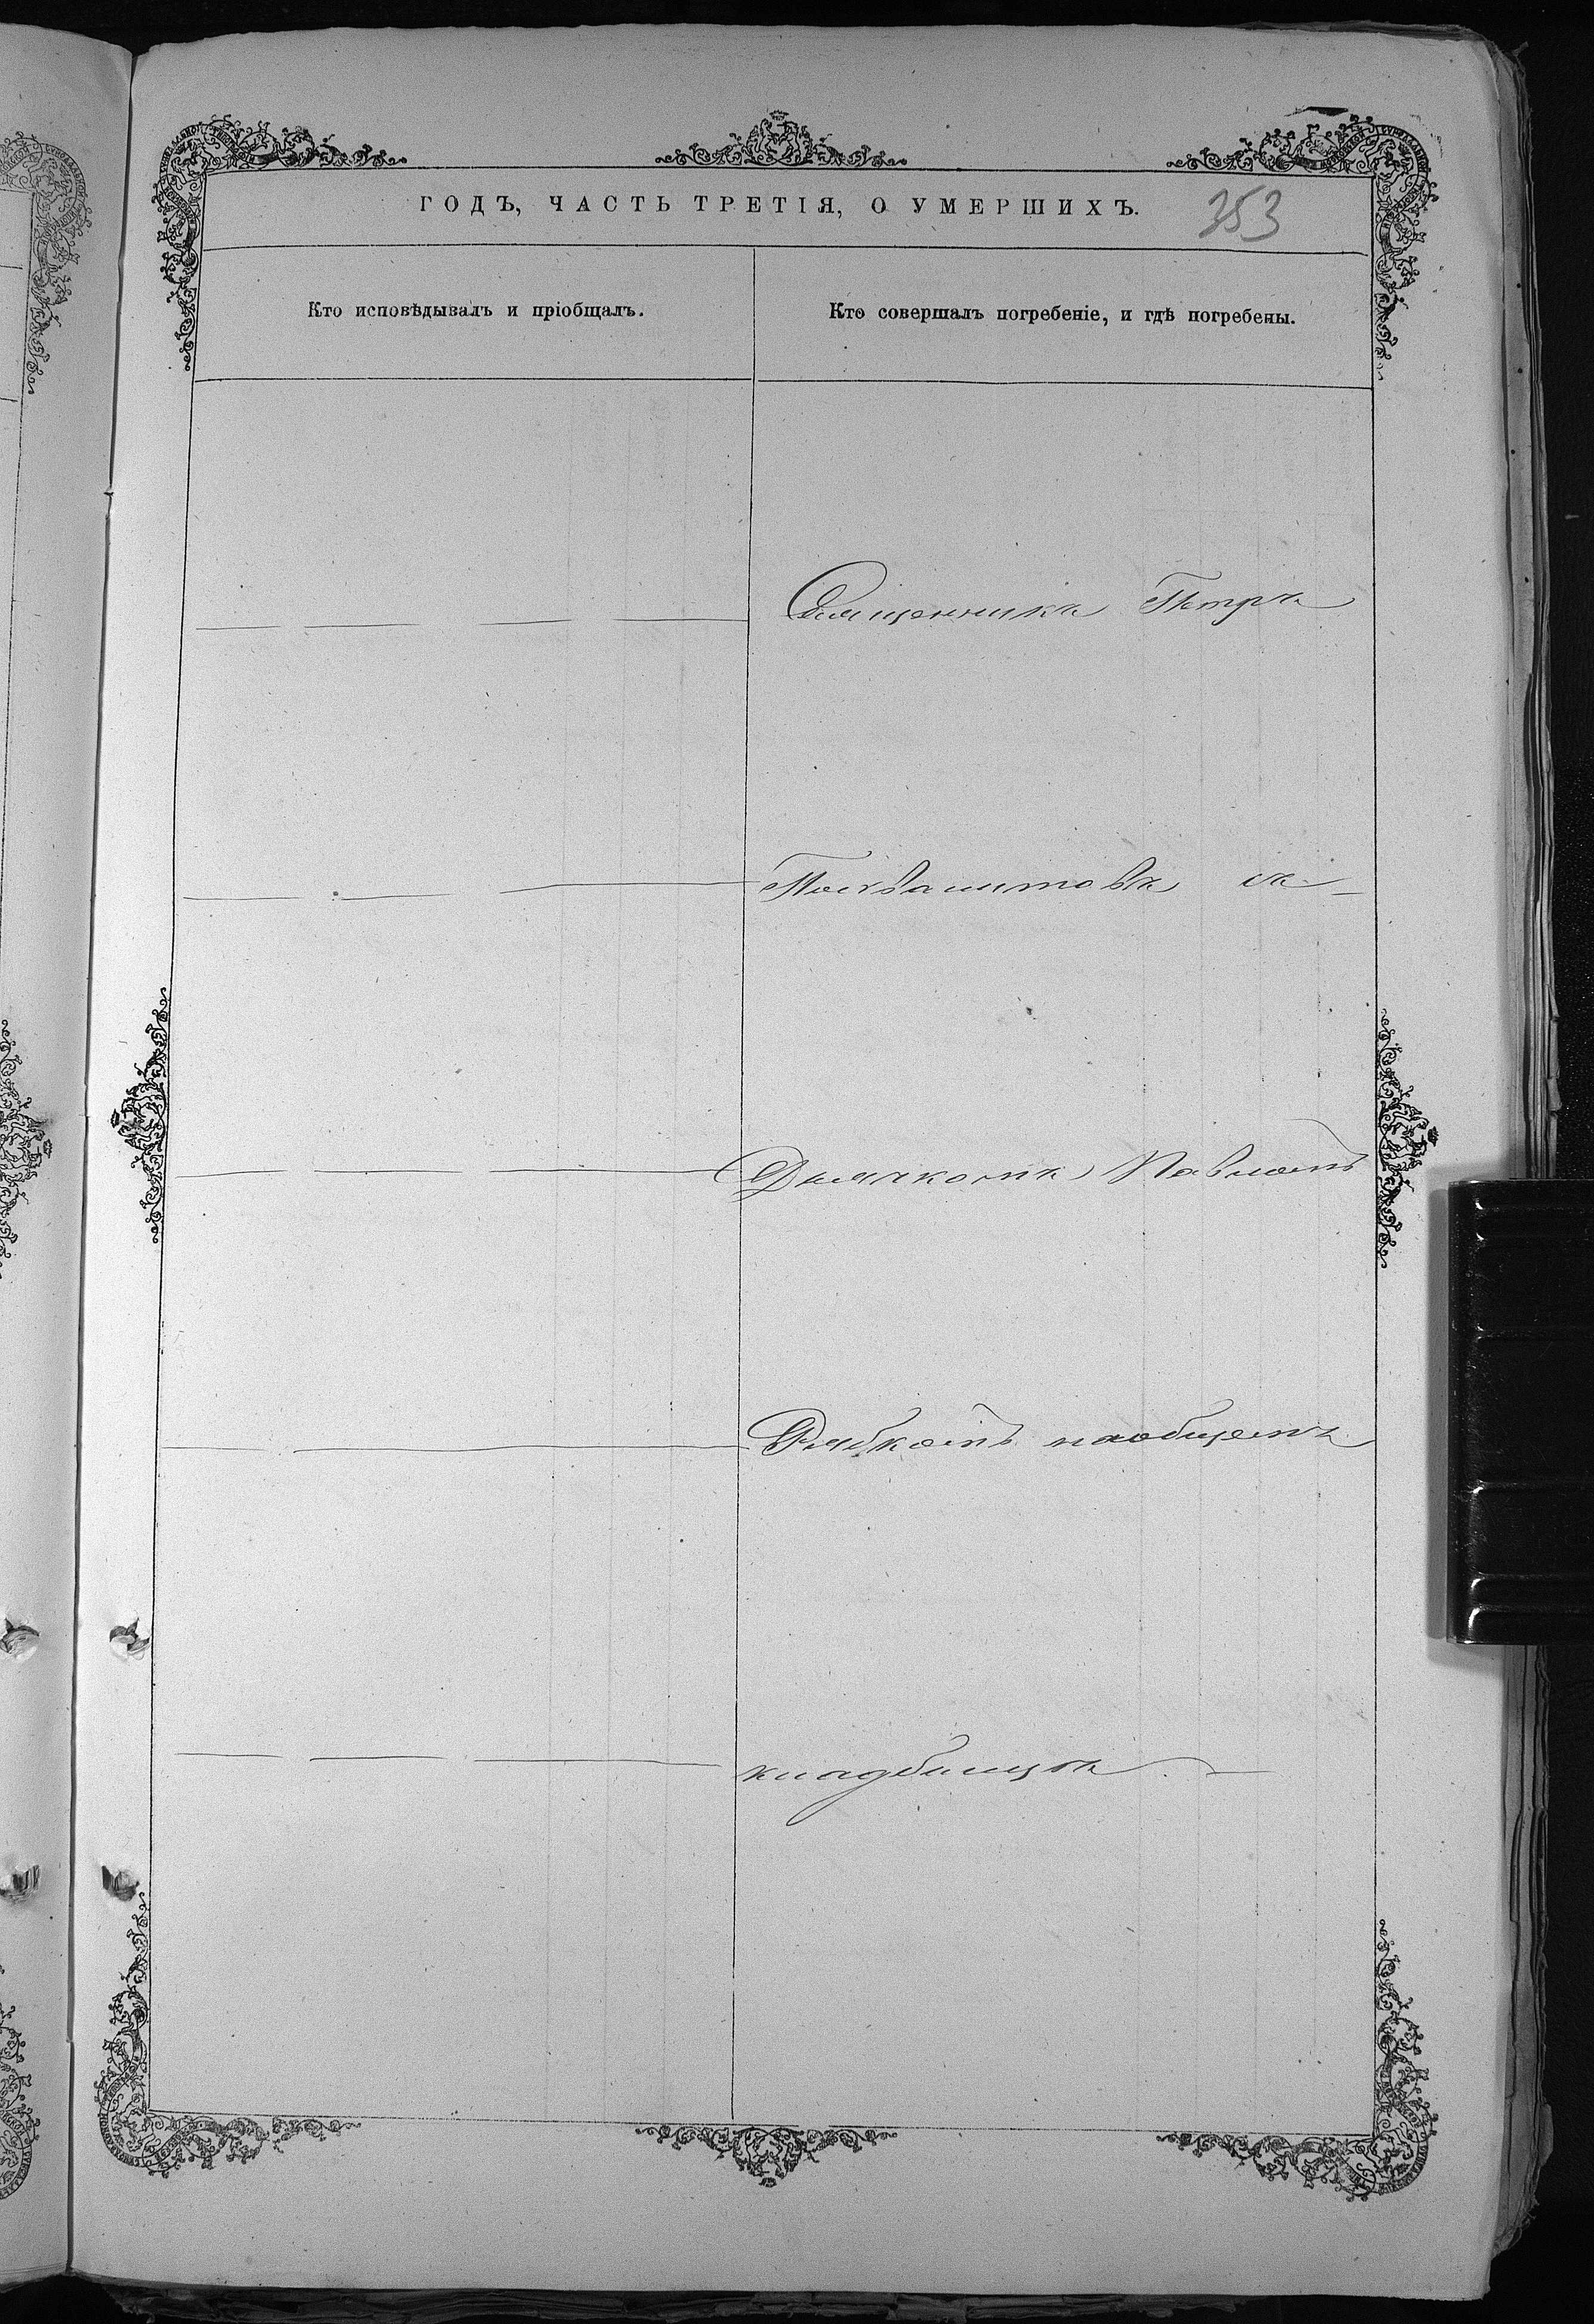 ГОДЪ, ЧАСТЬ ТРЕТІЯ, О УМЕРШИХЪ.
353
Кто исповѣдывалъ и пріобщалъ.
Кто совершалъ погребеніе, и гдѣ погребены.
Священникъ Петръ
съ
Дьячкомъ Павломъ
Рябкомъ наобщемъ
кладбищѣ.